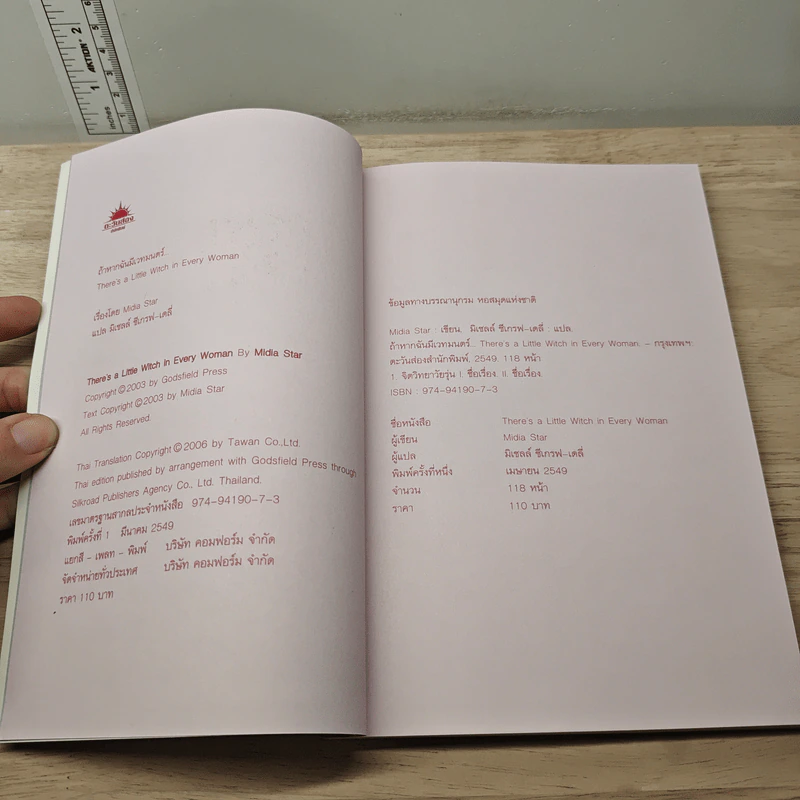 inches 1 AKTION® 2
ตะวันส่อง
ถ้าหากฉันมีเวทมนตร์
There's a Little Witch in Every Woman
เรื่องโดย Midia Star
แปล มิเชลล์ ซีเกรฟ-เดลี่
There's a Little Witch in Every Woman By Midia Star
Copyright©2003 by Godsfield Press
Text Copyright©2003 by Midia Star
All Rights Reserved.
Thai Translation Copyright©2006 by Tawan Co.,Ltd.
Thai edition published by arrangement with Godsfield Press through
Silkroad Publishers Agency Co., Ltd. Thailand.
เลขมาตรฐานสากลประจำหนังสือ 974-94190-7-3
พิมพ์ครั้งที่ 1 มีนาคม 2549
แยกสี - เพลท - พิมพ์ บริษัท คอมฟอร์ม จำกัด
จัดจำหน่ายทั่วประเทศ บริษัท คอมฟอร์ม จำกัด
ราคา 110 บาท
ข้อมูลทางบรรณานุกรม หอสมุดแห่งชาติ
Midia Star : เขียน, มิเชลล์ ซีเกรฟ-เดลี่ : แปล
ถ้าหากฉันมีเวทมนตร์. There's a Little Witch in Every Woman. – กรุงเทพฯ:
ตะวันส่องสำนักพิมพ์, 2549. 118 หน้า
1. จิตวิทยาวัยรุ่น I. ชื่อเรื่อง. II. ชื่อเรื่อง.
ISBN : 974-94190-7-3
ชื่อหนังสือ There's a Little Witch in Every Woman
ผู้เขียน Midia Star
ผู้แปล มิเชลล์ ซีเกรฟ-เดลี่
พิมพ์ครั้งที่หนึ่ง เมษายน 2549
จำนวน 118 หน้า
ราคา 110 บาท